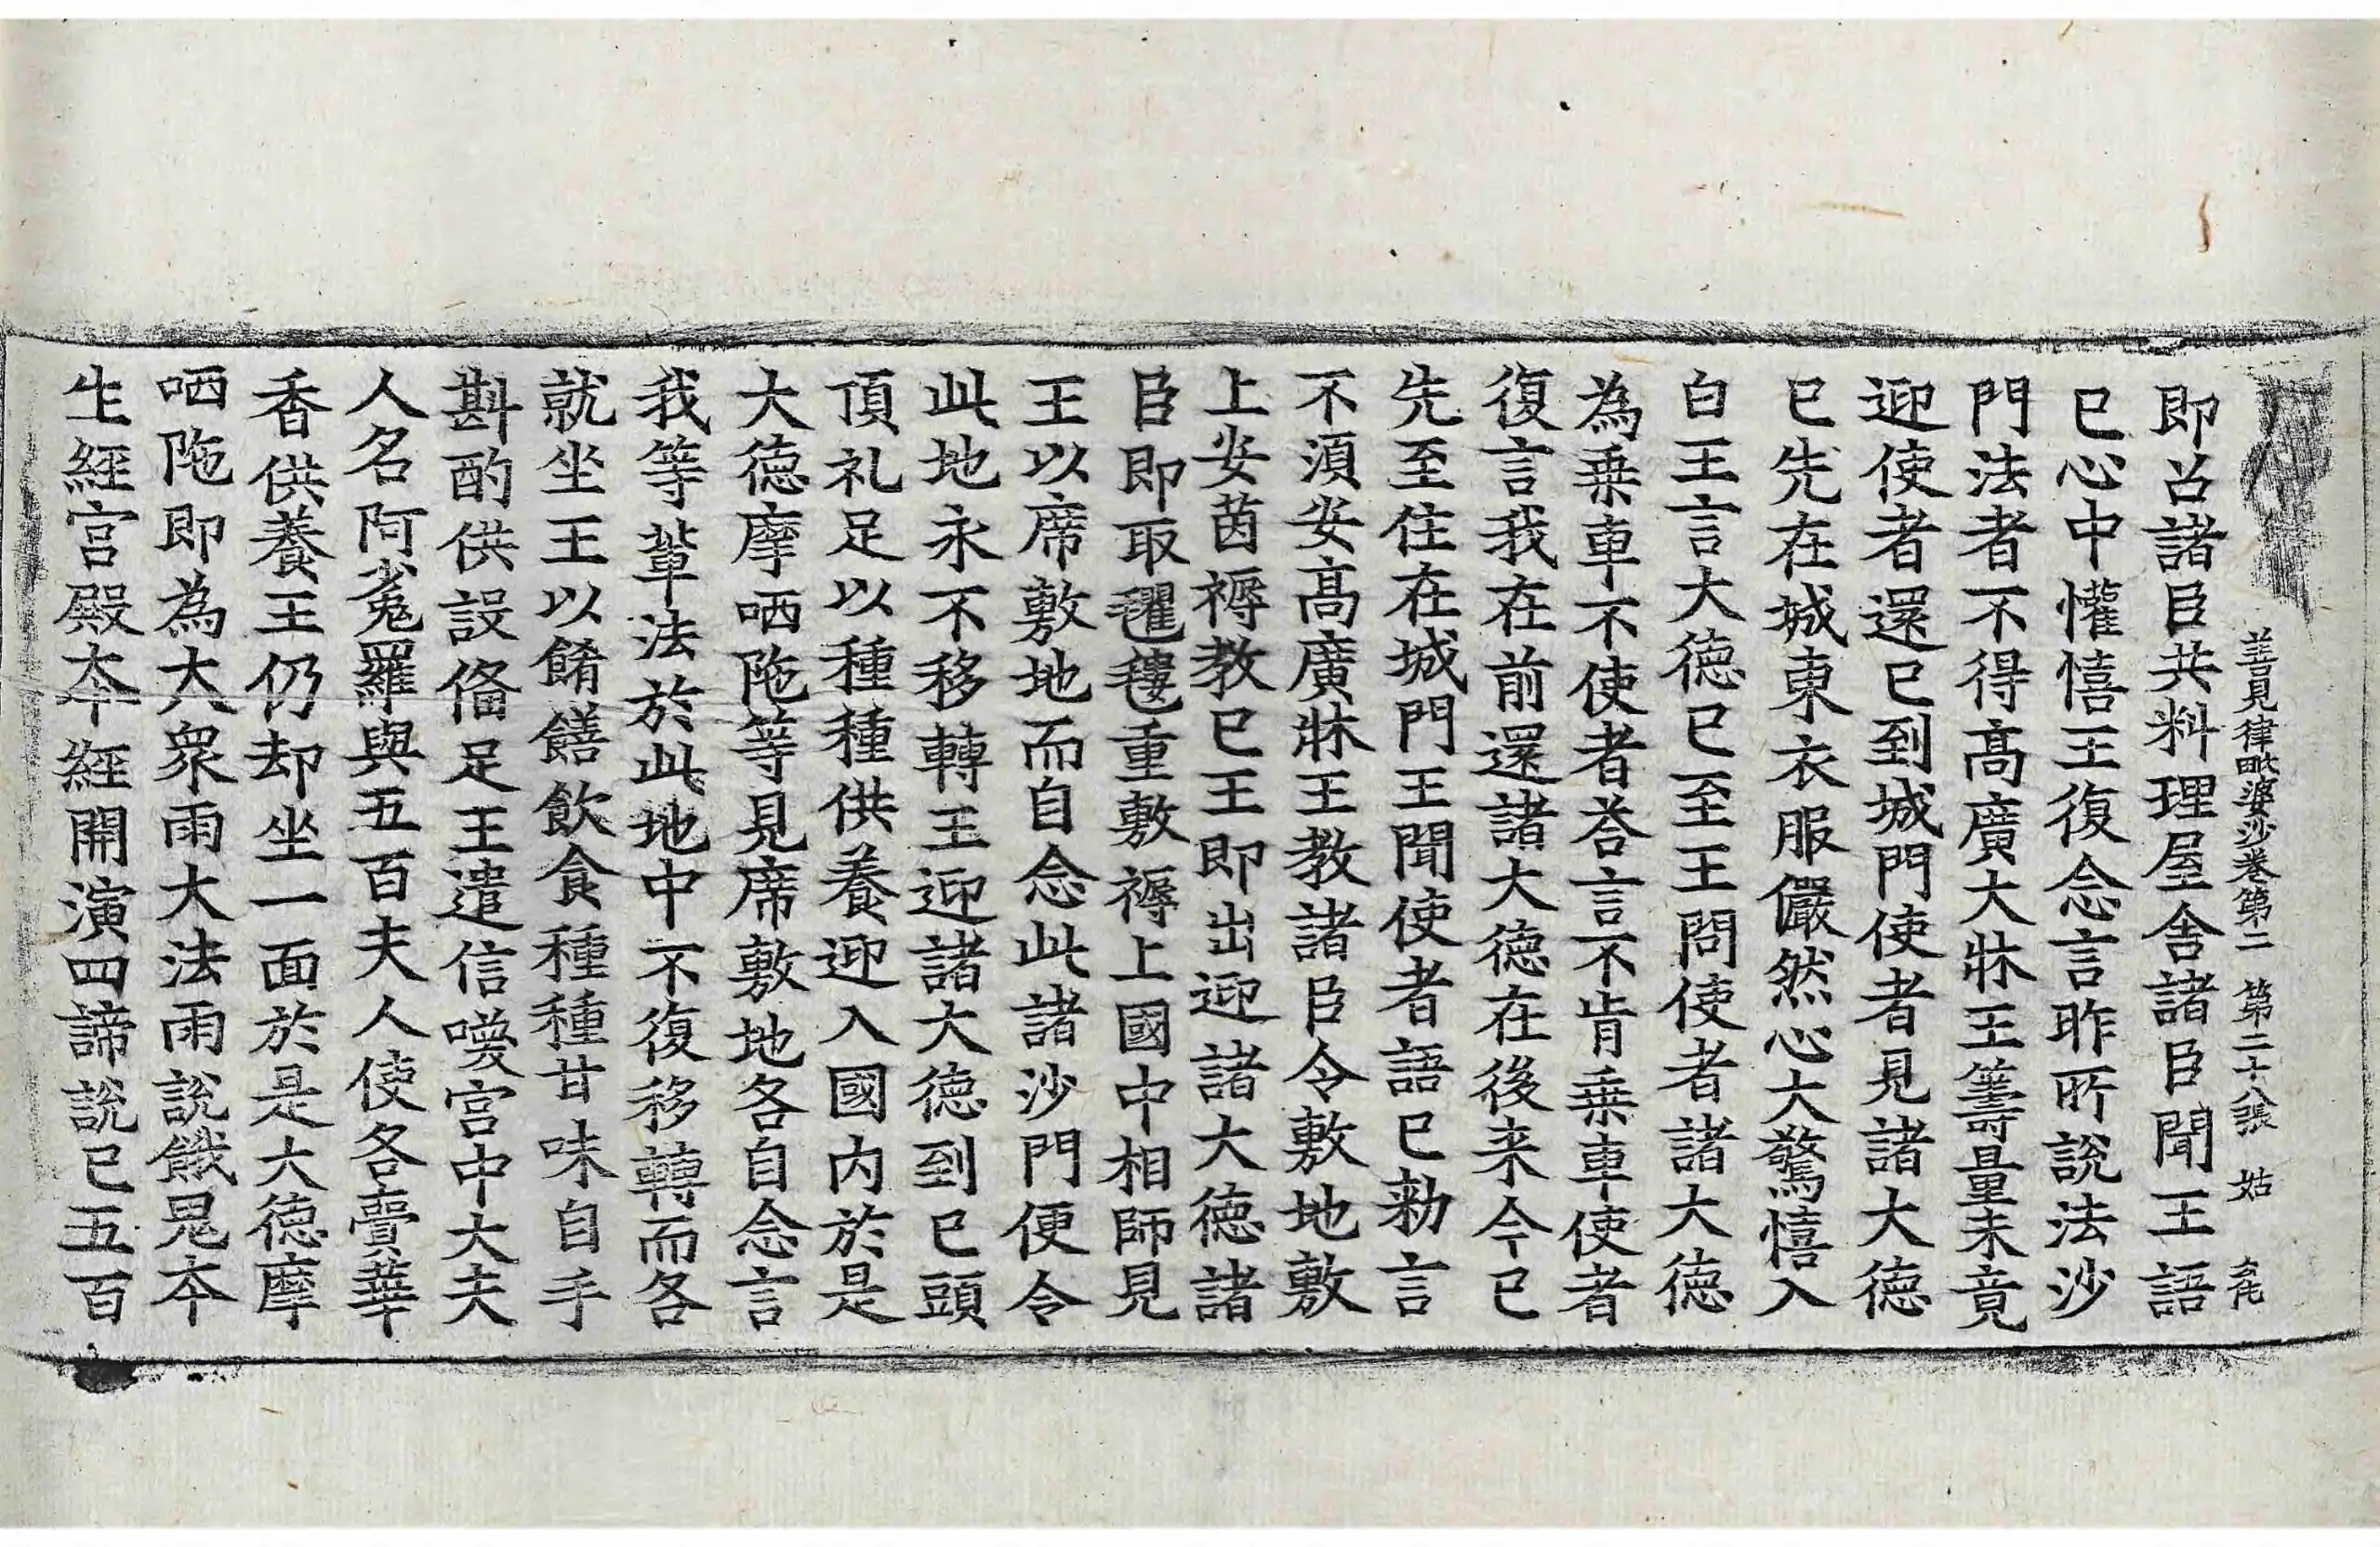 善見律毗婆沙卷第二　第二十八張　姑
即召諸臣共料理屋舍諸臣聞王語
已心中懽憘王復念言昨所說法沙
門法者不得高廣大牀王籌量未竟
迎使者還已到城門使者見諸大德
已先在城東衣服儼然心大驚憘入
白王言大德已至王問使者諸大德
為乗車不使者荅言不肯乗車使者
復言我在前還諸大德在後来今已
先至住在城門王聞使者語已勑言
不湏安高廣牀王教諸臣令敷地敷
上安茵褥教已王即出迎諸大德諸
臣即取氍毺重敷褥上國中相師見
王以席敷地而自念此諸沙門便令
此地永不移轉王迎諸大德到已頭
頂礼足以種種供養迎入國內於是
大德摩哂陁等見席敷地各自念言
我等輩法於此地中不復移轉而各
就坐王以餚饍飲食種種甘味自手
斟酌供設俻足王遣信喚宫中大夫
人名阿㝹羅與五百夫人使各賷華
香供養王仍却坐一面於是大德摩
哂陁即為大衆雨大法雨說餓鬼本
生經宫殿夲經開演四諦說已五百